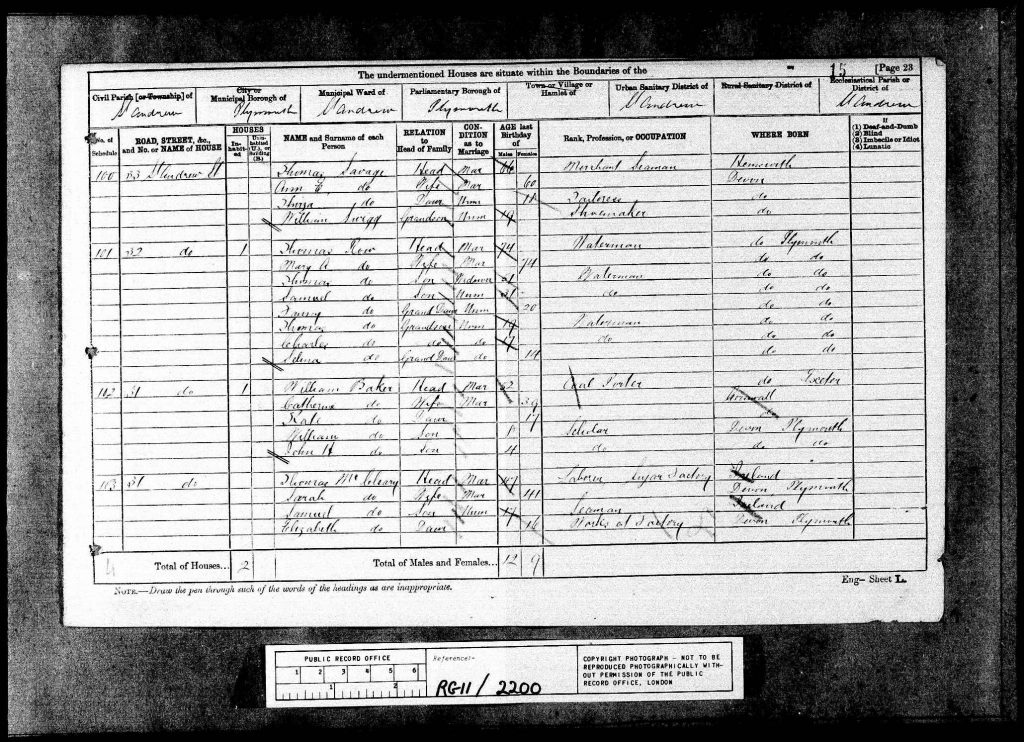 15 [Page 23
The undermentioned Houses are situate within the Boundaries of the
Civil Parish [or Township] of
City or Municipal Borough of
Municipal Ward of
Parliamentary Borough of
Town or Village or Hamlet of
Urban Sanitary District of
Rural Sanitary District of
Ecclesiastical Parish or District of
St Andrew Plymouth St Andrew Plymouth St Andrew St Andrew
No. of Schedule
ROAD, STREET, &c., and No. or NAME of HOUSE
HOUSES
Inhabited
Uninhabited (U.), or Building (B.)
NAME and Surname of each Person
RELATION to Head of Family
CONDITION as to Marriage
AGE last Birthday of
Males Females
Rank, Profession, or OCCUPATION
WHERE BORN
If
(1) Deaf-and-Dumb
(2) Blind
(3) Imbecile or Idiot
(4) Lunatic
100 33 St Andrew St Thomas Savage Head Mar 66 Merchant Seaman
Ann do Wife Mar 60 Devon
do Daur Unm Tailoress do
William Grandson Unm 19 Shoemaker do
101 32 do 1 Thomas Head Mar 74 Waterman do Plymouth
Mary do Wife Mar 74 do do
Thomas do Son Widower Waterman do do
Samuel do Son Unm do do do
do Grand Daur Unm 20 do do
Thomas do Grandson Unm 19 Waterman do do
Charles do do do 17 do do do
Selina do Grand Daur do 14 do do
102 31 do 1 William Baker Head Mar 52 Coal Porter do Exeter
Catherine do Wife Mar 39 Cornwall
Kate do Daur 17 do
William do Son Scholar Devon Plymouth
John H do Son 4 do do do
103 31 do Thomas Mc Cleary Head Mar 47 Laborer Sugar Factory Ireland
Sarah do Wife Mar 41 Devon Plymouth
Samuel do Son Unm 17 Seaman Ireland
Elizabeth do Daur 16 Works at Factory Devon Plymouth
4 Total of Houses... 2 Total of Males and Females... 12 9
NOTE.—Draw the pen through such of the words of the headings as are inappropriate.
Eng- Sheet L.
PUBLIC RECORD OFFICE
1 2 3 4 5 6
1 2
Reference:-
RG11/2200
COPYRIGHT PHOTOGRAPH - NOT TO BE
REPRODUCED PHOTOGRAPHICALLY WITH-
OUT PERMISSION OF THE PUBLIC
RECORD OFFICE, LONDON